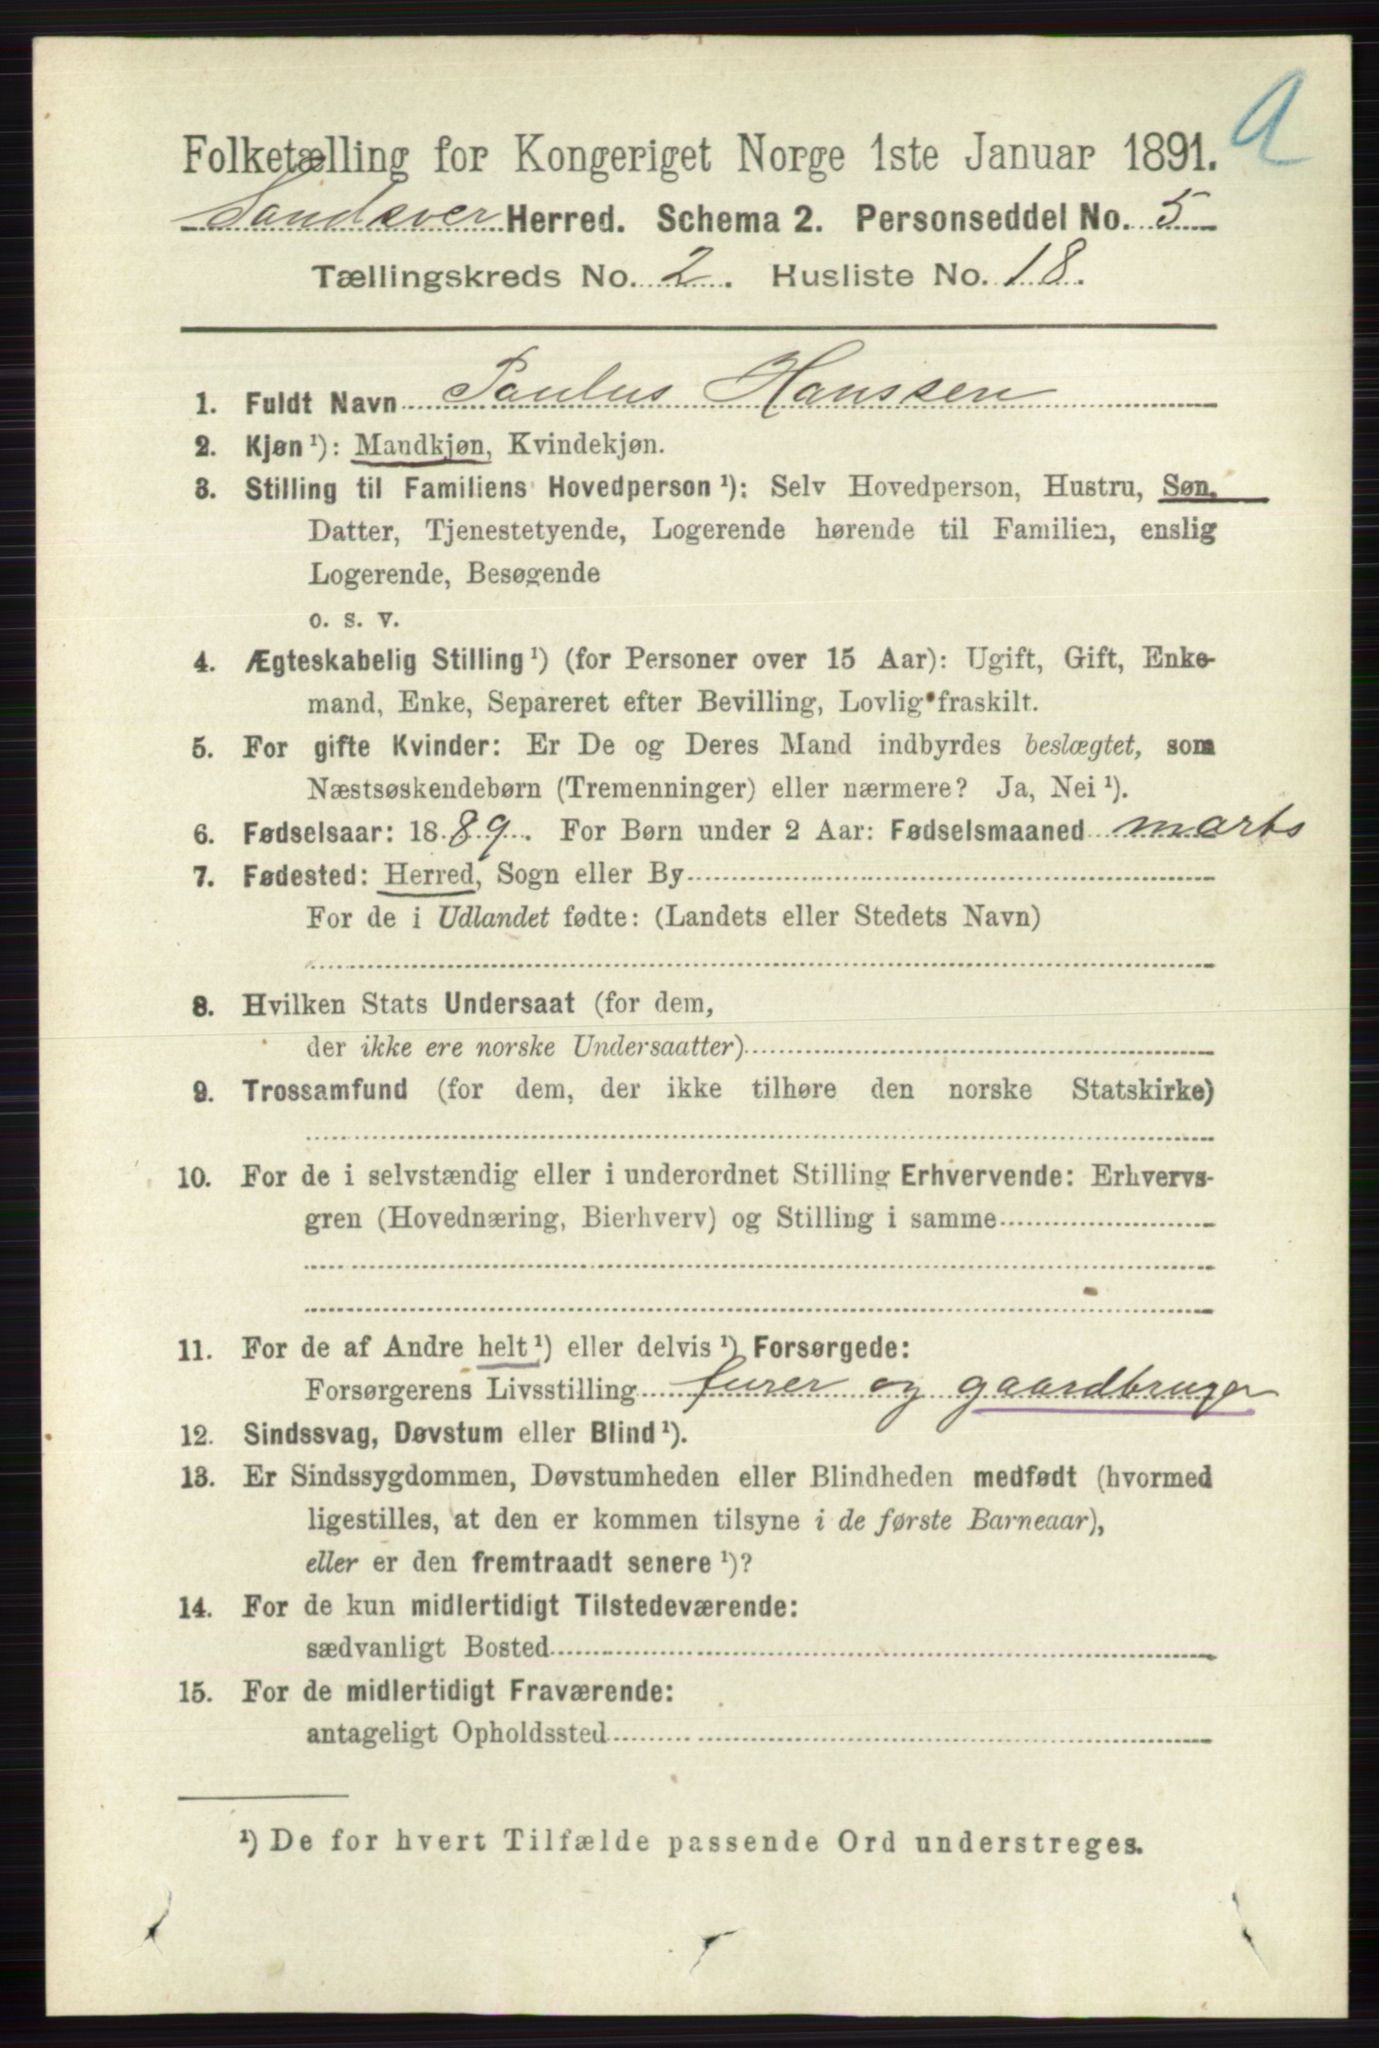 a
Folketælling for Kongeriget Norge 1ste Januar 1891.
Sandsver Herred. Schema 2. Personseddel No. 5
Tællingskreds No. 2. Husliste No. 18.
1. Fuldt Navn Paulus Hanssen
2. Kjøn¹): Mandkjøn, Kvindekjøn.
3. Stilling til Familiens Hovedperson¹): Selv Hovedperson, Hustru, Søn,
Datter, Tjenestetyende, Logerende hørende til Familien, enslig
Logerende, Besøgende
o. s. v.
4. Ægteskabelig Stilling¹) (for Personer over 15 Aar): Ugift, Gift, Enke-
mand, Enke, Separeret efter Bevilling, Lovlig fraskilt.
5. For gifte Kvinder: Er De og Deres Mand indbyrdes beslægtet, som
Næstsøskendebørn (Tremenninger) eller nærmere? Ja, Nei¹).
6. Fødselsaar: 1889. For Børn under 2 Aar: Fødselsmaaned marts
7. Fødested: Herred, Sogn eller By
For de i Udlandet fødte: (Landets eller Stedets Navn)
8. Hvilken Stats Undersaat (for dem,
der ikke ere norske Undersaatter)
9. Trossamfund (for dem, der ikke tilhøre den norske Statskirke)
10. For de i selvstændig eller i underordnet Stilling Erhvervende: Erhvervs-
gren (Hovednæring, Bierhverv) og Stilling i samme
11. For de af Andre helt¹) eller delvis¹) Forsørgede:
Forsørgerens Livsstilling furer og gaardbruger
12. Sindssvag, Døvstum eller Blind¹).
13. Er Sindssygdommen, Døvstumheden eller Blindheden medfødt (hvormed
ligestilles, at den er kommen tilsyne i de første Barneaar),
eller er den fremtraadt senere¹)?
14. For de kun midlertidigt Tilstedeværende:
sædvanligt Bosted
15. For de midlertidigt Fraværende:
antageligt Opholdssted
¹) De for hvert Tilfælde passende Ord understreges.